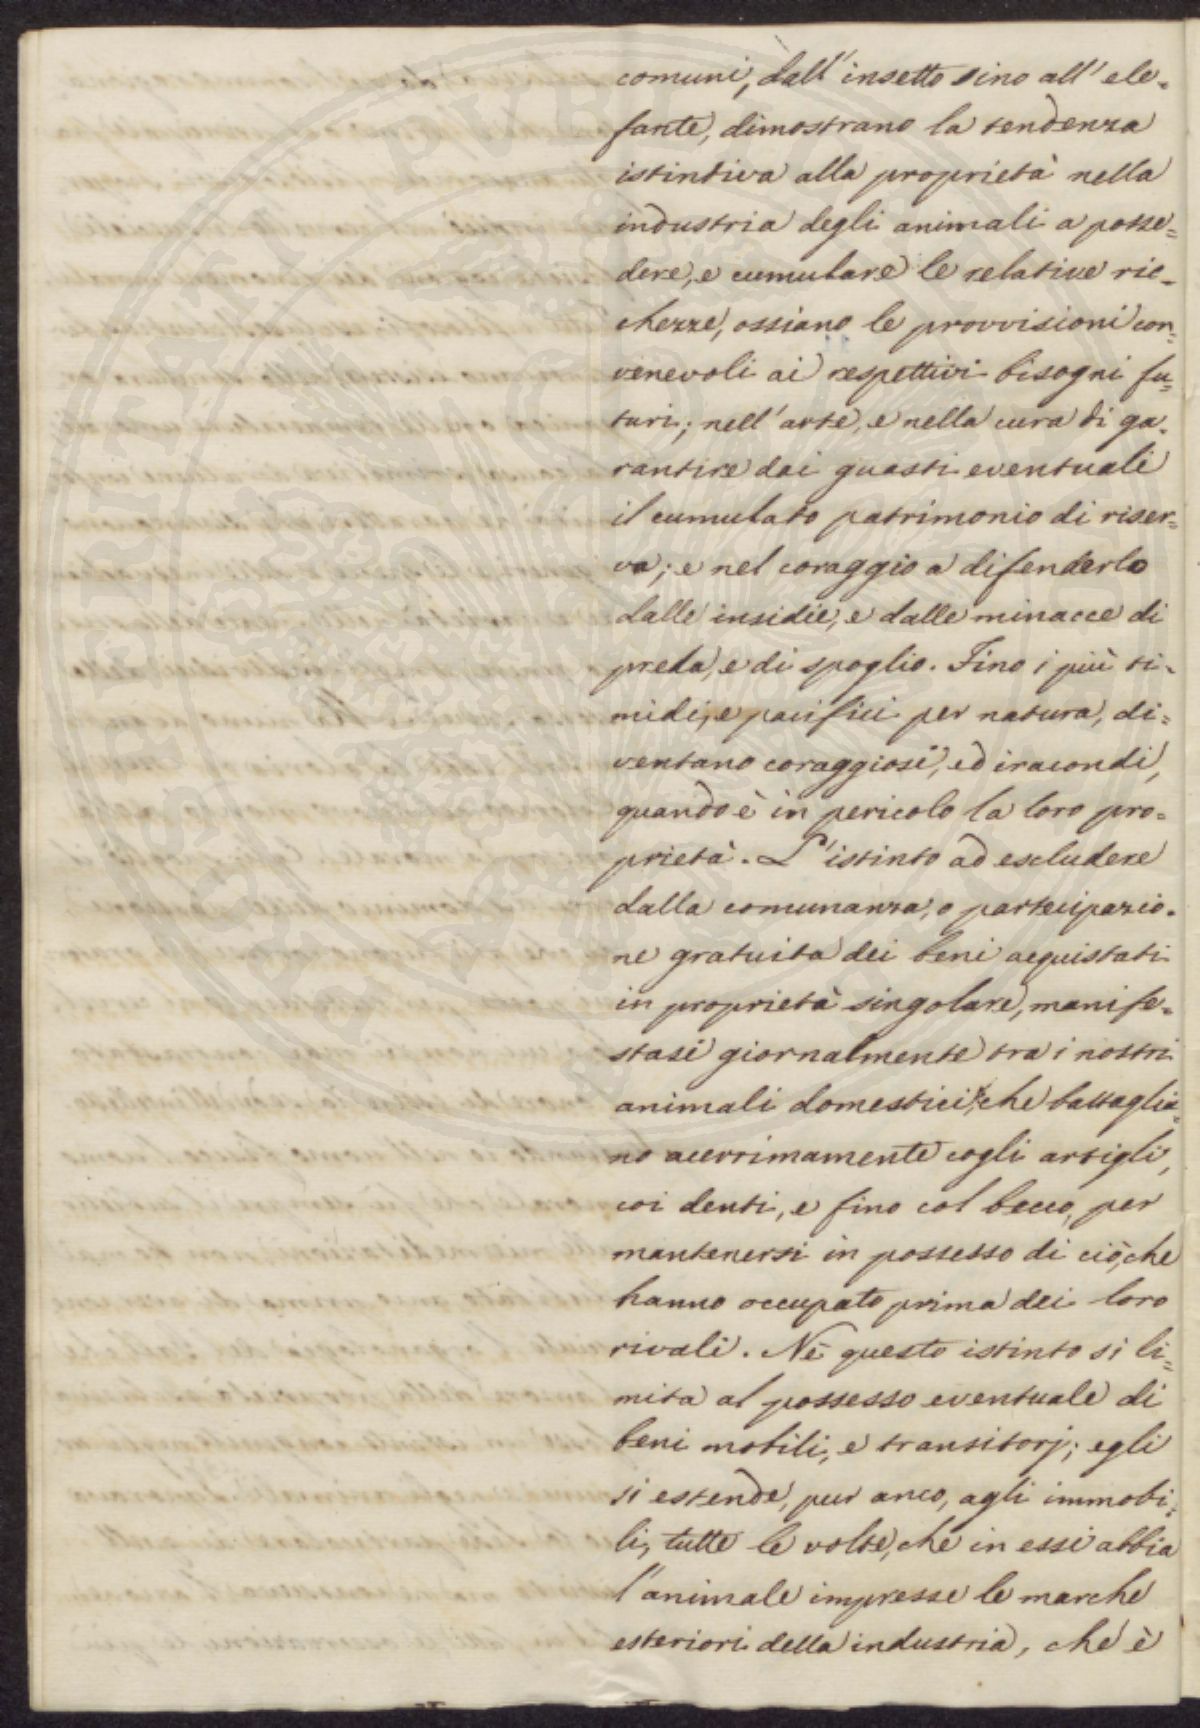 comuni, dall'insetto sino all'ele-
fante, dimostrano la tendenza
istintiva alla proprietà nella
industria degli animali a posse=
dere, e cumulare le relative ric-
chezze, ossiano le provvisioni con=
venevoli ai respettivi bisogni fu=
turi; nell'arte, e nella cura di ga-
rantire dai guasti eventuali
il cumulato patrimonio di riser=
va; e nel coraggio a difenderlo
dalle insidie, e dalle minacce di
preda, e di spoglio. Fino i più ti-
midi, e pacifici per natura, di=
ventano coraggiosi, ed iracondi,
quando è in pericolo la loro pro-
prietà. L'istinto ad escludere
dalla comunanza, o partecipazio-
ne gratuita dei beni acquistati
in proprietà singolare, manife-
stasi giornalmente tra i nostri
animali domestici, che battaglia=
no acerrimamente cogli artigli,
coi denti, e fino col becco, per
mantenersi in possesso di ciò, che
hanno occupato prima dei loro
rivali. Nè questo istinto si li=
mita al possesso eventuale di
beni mobili, e transitorj; egli
si estende, pur anco, agli immobi=
li, tutte le volte, che in essi abbia
l'animale impresse le marche
esteriori della industria, che è